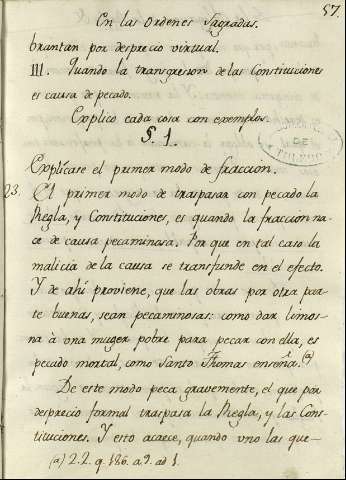 57.
En las Ordenes Sagradas.
brantan por desprecio virtual.
III. Quando la transgresion de las Constituciones
es causa de pecado.
Explico cada cosa con exemplos.
§. 1.
DE
TOLEDO
Explícase el primer modo de fraccion.
23. El primer modo de traspasar con pecado la
Regla, y Constituciones, es quando la fraccion na-
ce de causa pecaminosa. Porque en tal caso la
malicia de la causa se transfunde en el efecto.
Y de ahí proviene, que las obras por otra par-
te buenas, sean pecaminosas: como dar limos-
na à una muger pobre para pecar con ella, es
pecado mortal, como Santo Thomas enseña. (a)
De este modo peca gravemente, el que por
desprecio formal traspasa la Regla, y las Cons-
tituciones. Y esto acaece, quando uno las que-
(a) 2.2. q. 186. a. 9. ad 1.